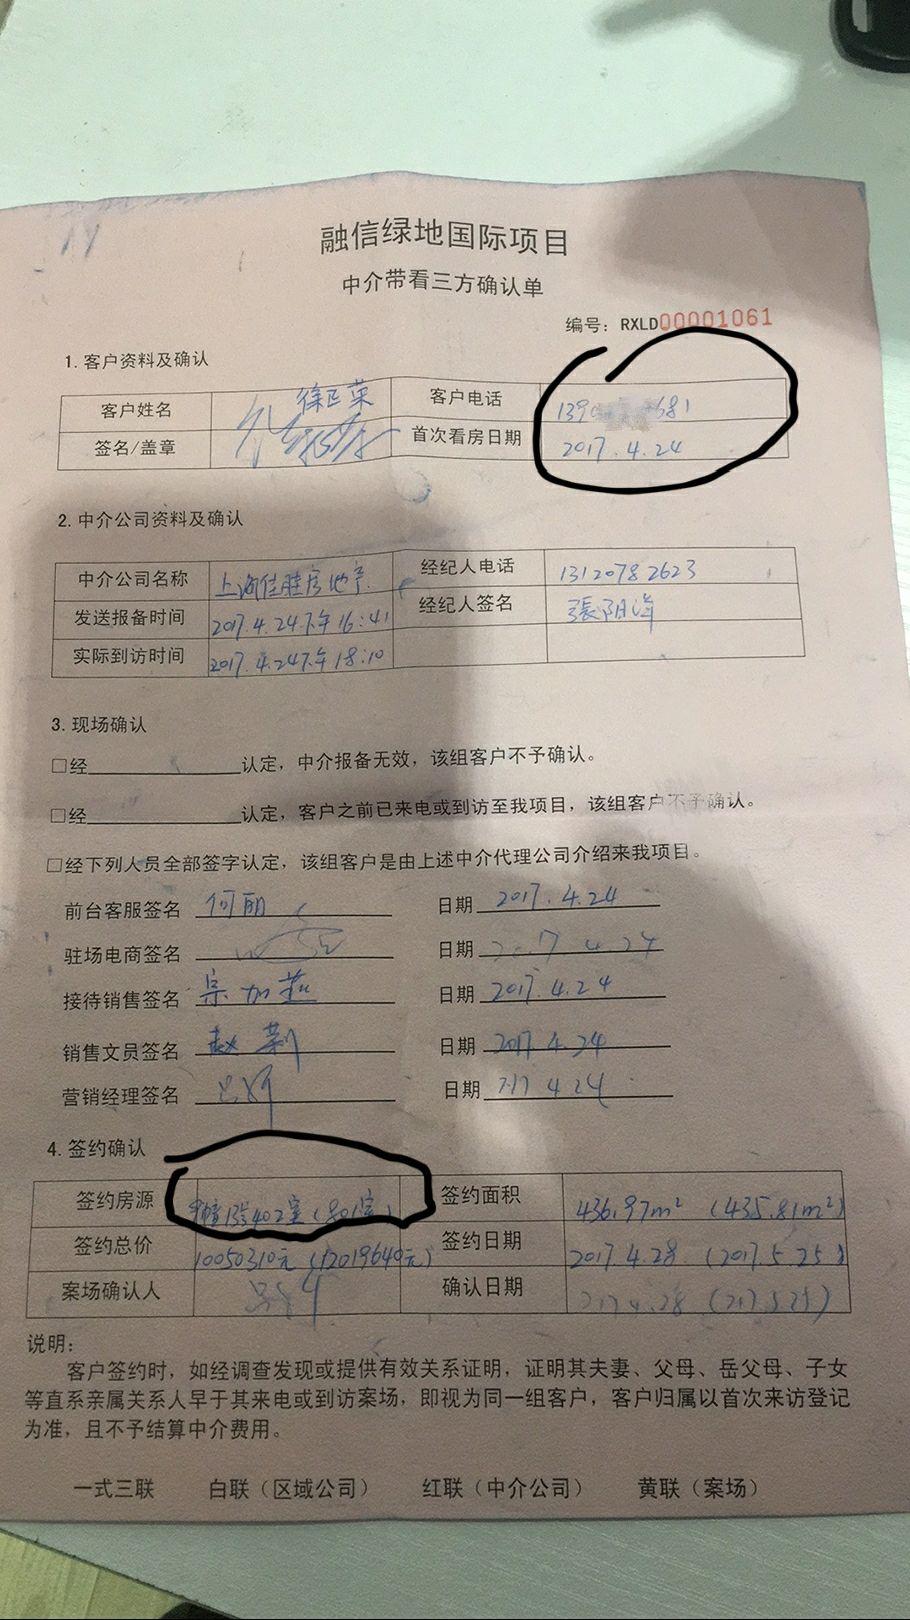 融信绿地国际项目
中介带看三方确认单
编号：RXLD00001061
1.客户资料及确认
客户姓名 徐正荣 客户电话 139 681
签名/盖章 首次看房日期 2017.4.24
2.中介公司资料及确认
中介公司名称 上海佳胜房地产 经纪人电话 13120782623
发送报备时间 2017.4.24下午16:41 经纪人签名
实际到访时间 2017.4.24下午18:10
3.现场确认
□经 认定，中介报备无效，该组客户不予确认。
□经 认定，客户之前已来电或到访至我项目，该组客户不予确认。
□经下列人员全部签字认定，该组客户是由上述中介代理公司介绍来我项目。
前台客服签名 何丽 日期 2017.4.24
驻场电商签名 日期 2017 4 24
接待销售签名 日期 2017.4.24
销售文员签名 日期 2017.4.24
营销经理签名 日期 217 4 24
4.签约确认
签约房源 幢13号402室（801室） 签约面积 436.97m²（435.81m²）
签约总价 10050310元（12019640元） 签约日期 2017.4.28（2017.5.25）
案场确认人 确认日期 217.4.28（217.5.25）
说明：
客户签约时，如经调查发现或提供有效关系证明，证明其夫妻、父母、岳父母、子女
等直系亲属关系人早于其来电或到访案场，即视为同一组客户，客户归属以首次来访登记
为准，且不予结算中介费用。
一式三联 白联（区域公司） 红联（中介公司） 黄联（案场）